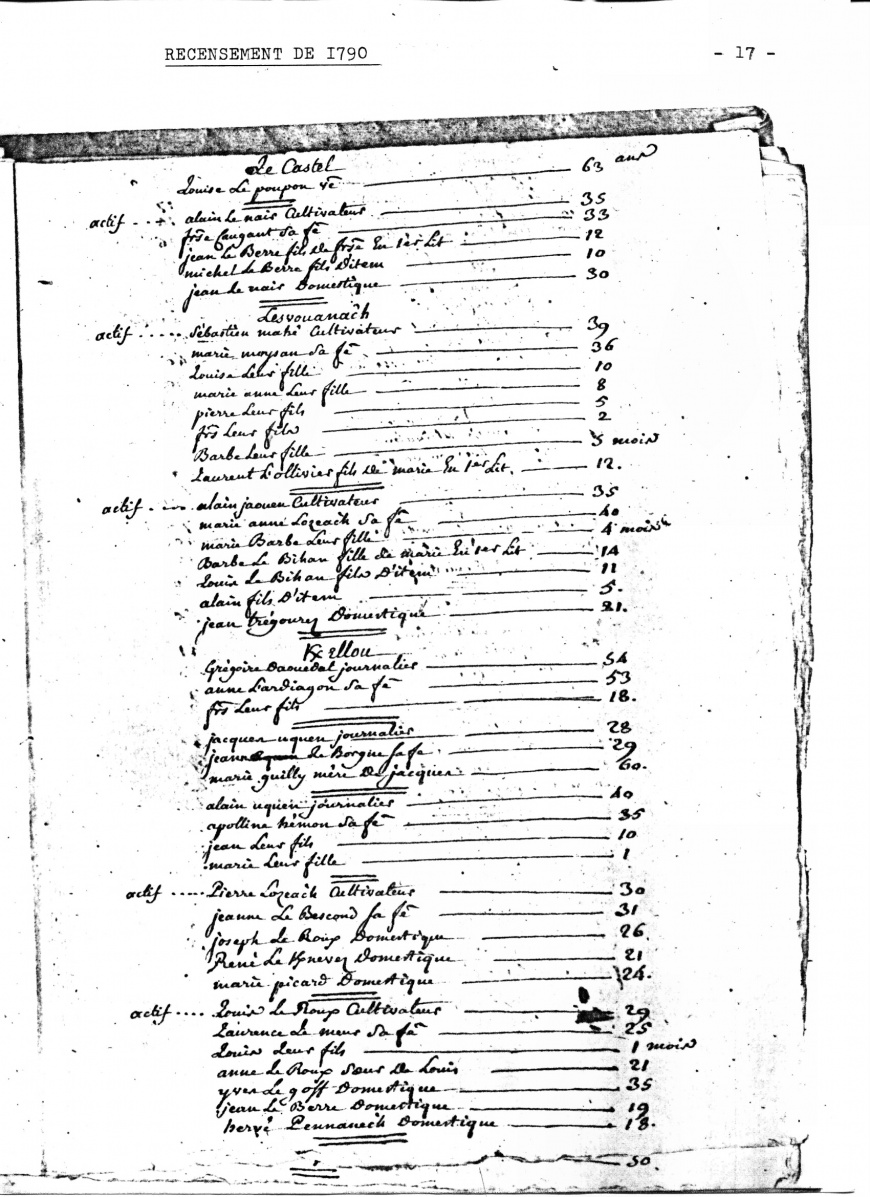 RECENSEMENT DE 1790 - 17 -
Le Castel
Louise Le poupon vē 63 ans
actif ... alain Le nair Cultivateur 35
frse Caugant Sa fē 33
jean Le Berre fils de frse En 1er Lit 12
michel Le Berre fils D'item 10
jean Le nair Domestique 30
Lesvouanach
actif ..... Sébastien mahé Cultivateur 39
marie moysan Sa fē 36
Louise Leur fille 10
marie anne Leur fille 8
pierre Leur fils 5
frs Leur fils 2
Barbe Leur fille 5 mois
Laurent L'ollivier fils De marie En 1er Lit. 12.
actif ..... alain jaouen Cultivateur 35
marie anne Lozeach Sa fē 40
marie Barbe Leur fille 4 mois
Barbe Le Bihan fille de marie En 1er Lit 14
Louis Le Bihan fils D'item 11
alain fils D'item 5.
jean trégourez Domestique 21.
Kellou
Grégoire Daouedal journalier 54
anne Lardiagon Sa fē 53
frs Leur fils 18.
jacques uguen journalier 28
jeanne Le Borgne Sa fe 29
marie guilly mère de jacques 60.
alain uguen journalier 40
apolline hémon Sa fē 35
jean Leur fils 10
marie Leur fille 1
actif ..... Pierre Lozeach Cultivateur 30
jeanne Le Bescond Sa fē 31
joseph Le Roux Domestique 26
René Le Knevez Domestique 21
marie picard Domestique 24.
actif .... Louis Le Roux Cultivateur 29
Laurence Le meur Sa fē 25
Louis Leur fils 1 mois
anne Le Roux Sœur De Louis 21
yves Le goff Domestique 35
jean Le Berre Domestique 19
hervé Pennanech Domestique 18.
50.